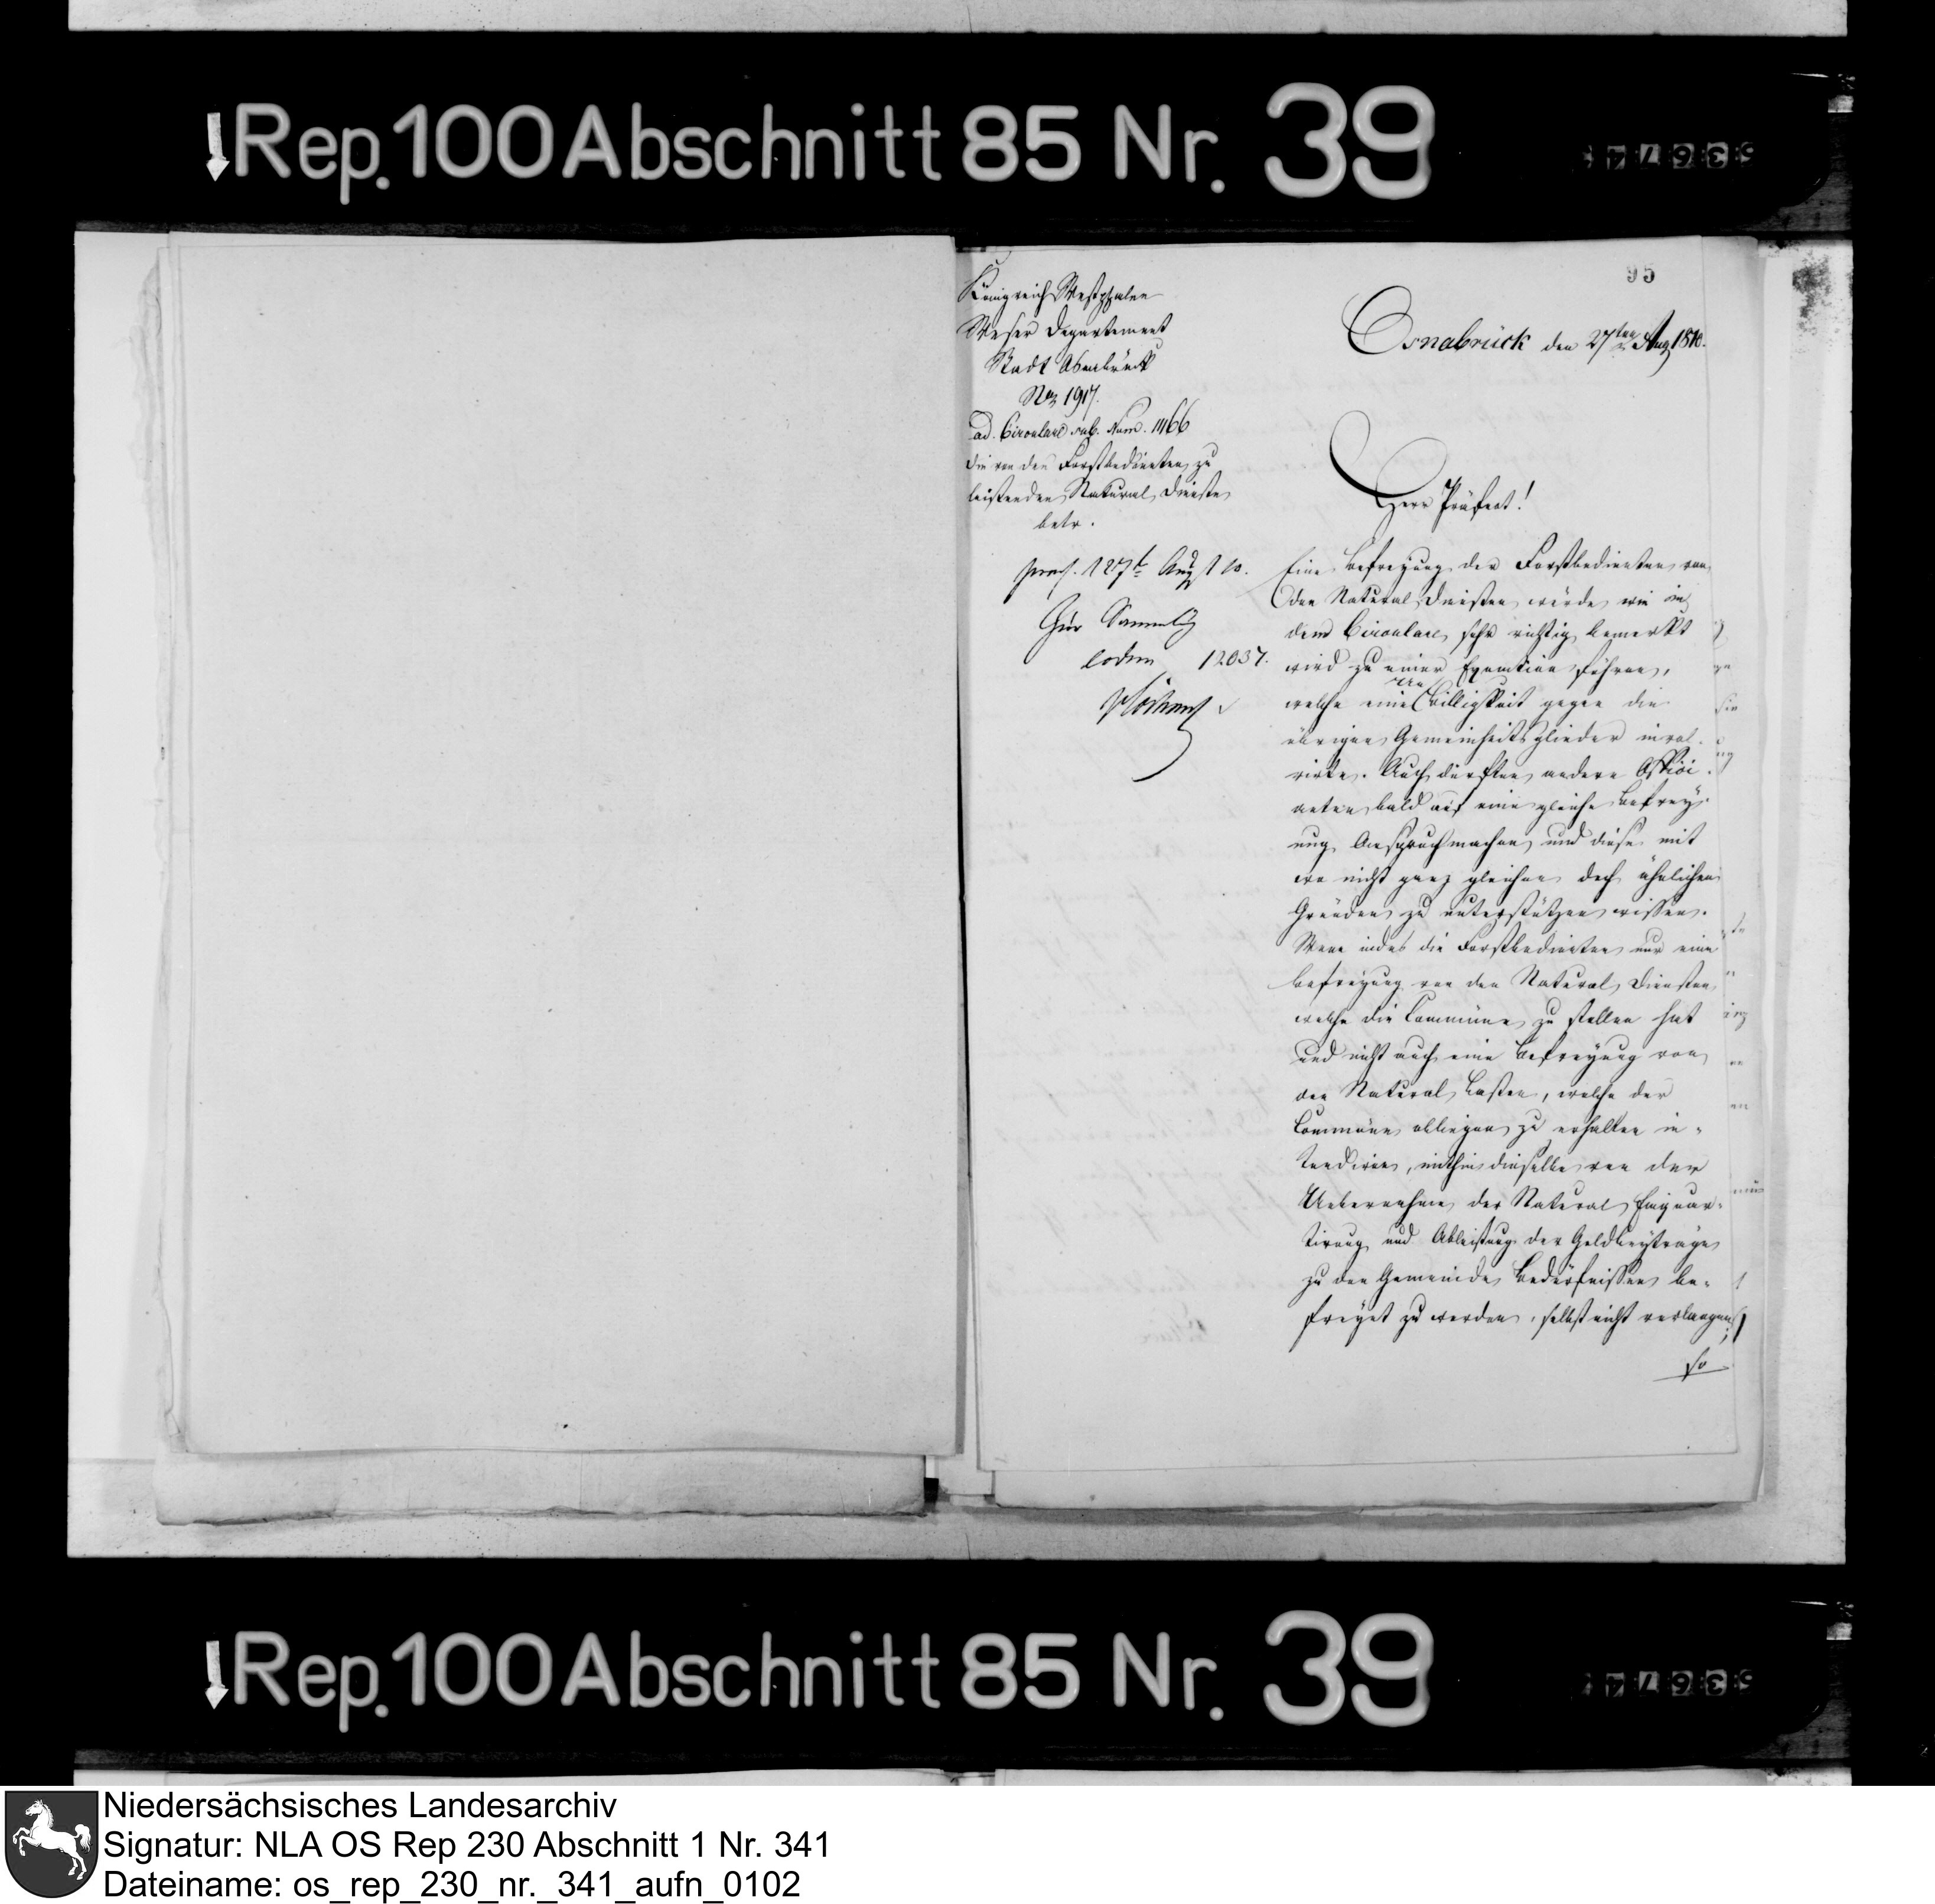 Rep. 100 Abschnitt 85 Nr. 39
95
Königreich Westphalen
Weser Departement
Stadt Osnabrück
Nro 1917.
ad. Circulare sub. Num. 11166
die von den Forstbedienten zu
leistenden Natural Dienste
betr.
praes. 27t August 10.
Zur Sammlg
eodem 12037.
Osnabrück den 27ten Aug 1810.
Herr Präfect!
Eine Befreyung der Forstbedienten von
den Natural Diensten würde, wie in
dem Circulare sehr richtig bemerkt
wird zu einer Exemtion führen,
welche eine Unbilligkeit gegen die
übrigen Gemeinheitsglieder invol-
virte. Auch dürften andere Offici-
anten bald auf eine gleiche Befrey-
ung Anspruch machen, und diese mit
wo nicht ganz gleichen doch ähnlichen
Gründen zu unterstützen wissen.
Wenn indeß die Forstbedienten nur eine
Befreyung von den Natural Diensten,
welche die Commüne zu stellen hat
und nicht auch eine Befreyung von
den Natural Lasten, welche der
Commüne obliegen zu erhalten in-
tendiren, mithin dieselbe von der
Uebernahme der Natural Einquar-
tirung und Ableistung der Geldbeyträge
zu den Gemeinde Bedürfnissen be-
freyet zu werden, selbst nicht verlangen;
so
Rep. 100 Abschnitt 85 Nr. 39
Niedersächsisches Landesarchiv
Signatur: NLA OS Rep 230 Abschnitt 1 Nr. 341
Dateiname: os_rep_230_nr._341_aufn_0102